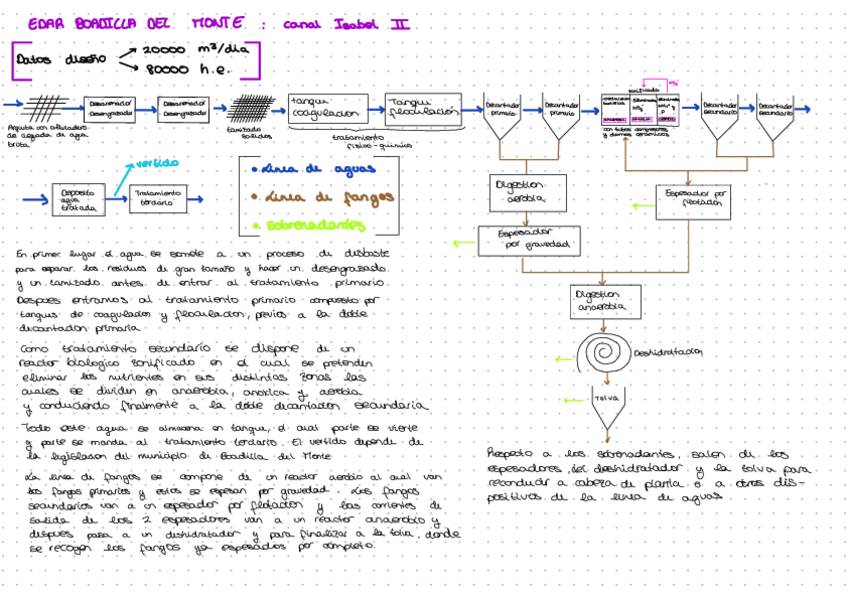 EDAR BOADILLA DEL MONTE : Canal Isabel II
Datos diseño
20000 m³/dia
80000 h.e.
Desarenador Desengrasador
Desarenador Desengrasador
Tamizado sólidos
tanque coagulacion
Tanque floculación
tratamiento físico-químico
Decantador primario
Decantador primario
zonificado
con tubos
Decantador secundario
Decantador secundario
de llegada de agua
bruta.
vertido
Deposito agua tratada
Tratamiento terciario
• Linea de aguas
• Linea de fangos
• Sobrenadantes
Digestion aerobia
Espesador por gravedad
Espesador por flotacion
Digestion anaerobia
Deshidratacion
Tolva
En primer lugar el agua se somete a un proceso de desbaste
para separar los residuos de gran tamaño y hacer un desengrasado
y un tamizado antes de entrar al tratamiento primario.
Despues entramos al tratamiento primario compuesto por
tanques de coagulacion y floculacion, previos a la doble
decantacion primaria.
Como tratamiento secundario se dispone de un
reactor biologico zonificado en el cual se pretenden
eliminar los nutrientes en sus distintas zonas las
cuales se dividen en anaerobia, anoxica y aerobia
y conduciendo finalmente a la doble decantacion secundaria
Todo este agua se almacena en tanque, el cual parte se vierte
y parte se manda al tratamiento terciario. El vertido depende de
la legislacion del municipio de Boadilla del Monte
La linea de fangos se compone de un reactor aerobio al cual van
los fangos primarios y estos se espesan por gravedad. Los fangos
secundarios van a un espesador por flotacion y las corrientes de
salida de los 2 espesadores van a un reactor anaerobio y
despues pasa a un deshidratador y para finalizar a la tolva, donde
se recogen los fangos ya espesados por completo.
Respecto a los sobrenadantes, salen de los
espesadores, del deshidratador y la tolva para
reconducir a cabeza de planta o a otros dis-
positivos de la linea de aguas